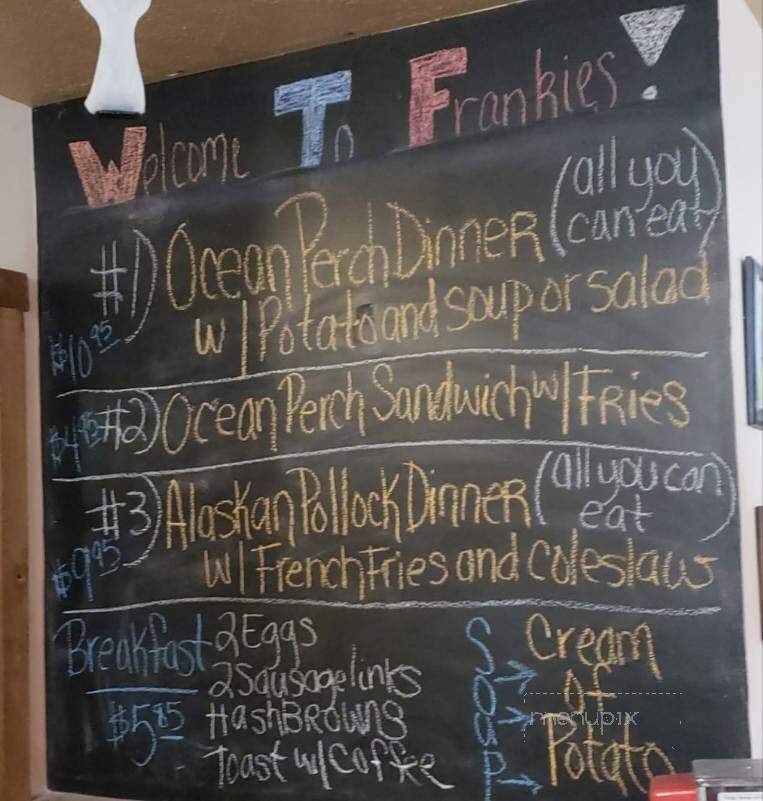 Welcome To Frankies!
#1) Ocean Perch Dinner (all you can eat)
$10.95 w/Potato and soup or salad
$4.95 #2) Ocean Perch Sandwich w/Fries
#3) Alaskan Pollock Dinner (all you can eat)
$9.95 w/French Fries and coleslaw
Breakfast 2 Eggs
2 Sausage links
$5.85 HashBrowns
Toast w/ Coffee
SOUP Cream
of
Potato
menupix